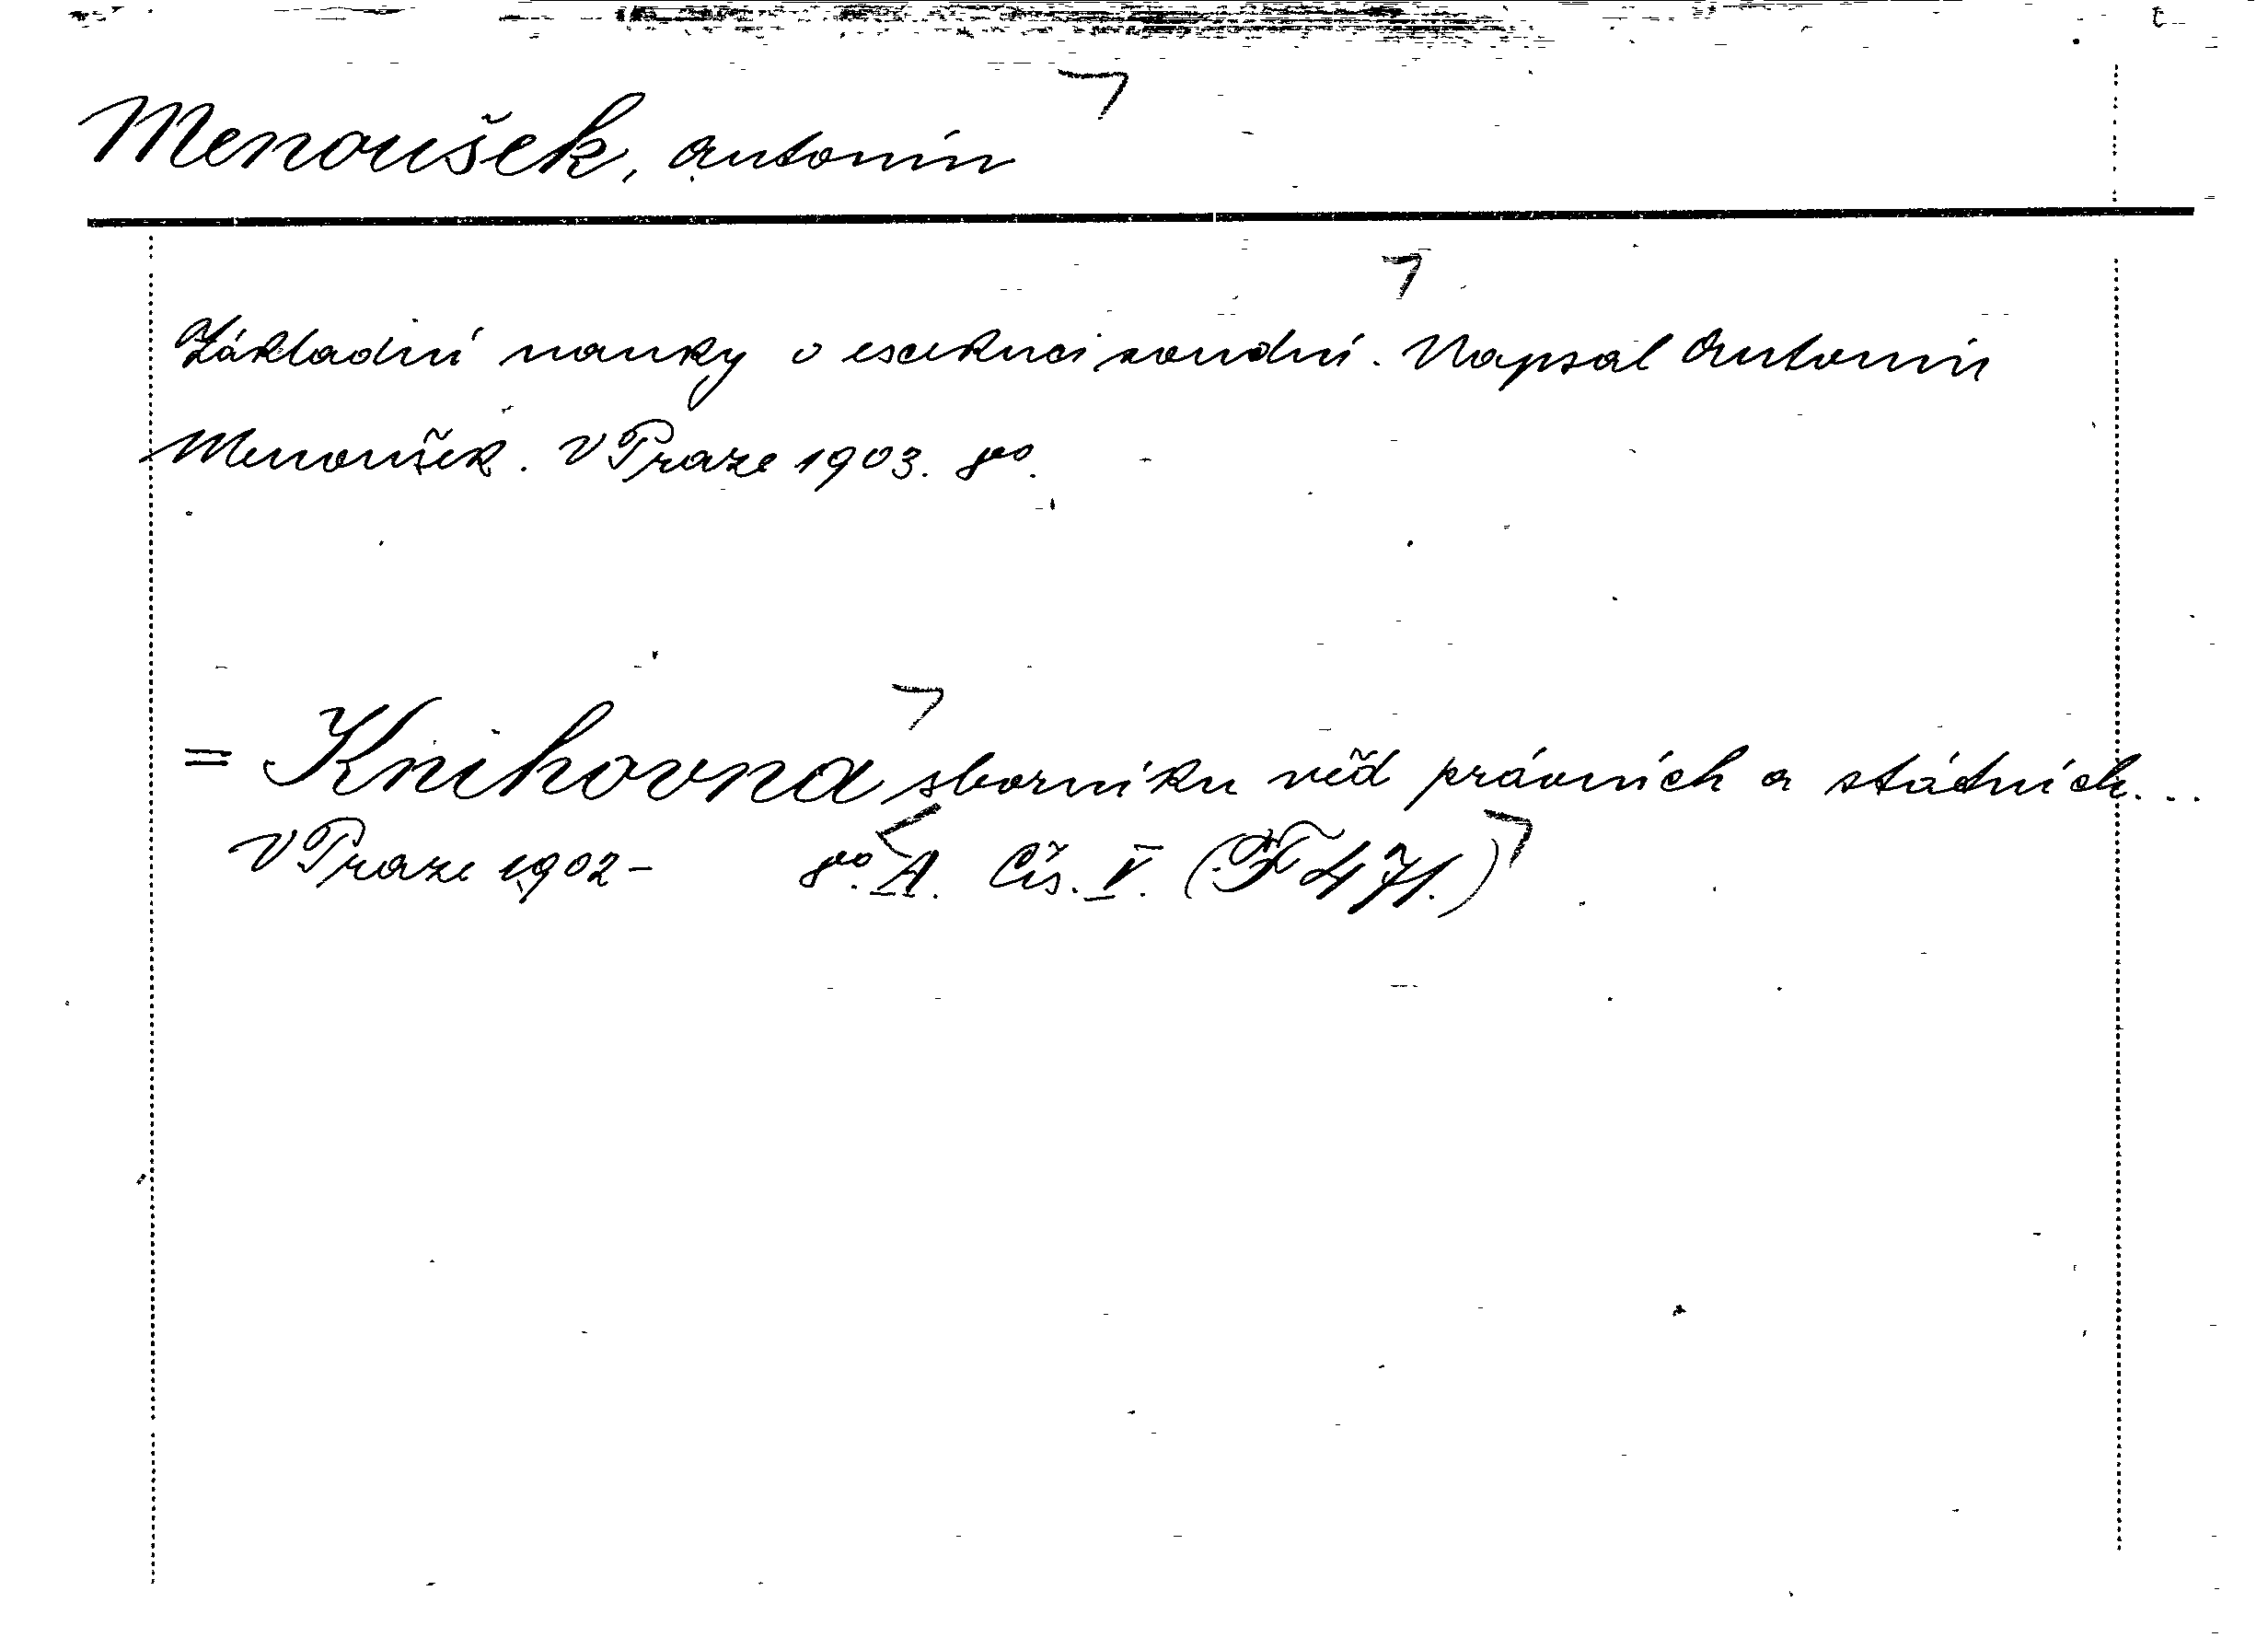 Menoušek, Antonín
Základní nauky o exekuci soudní. Napsal Antonín
Menoušek. V Praze 1903. 8vo.
= Knihovna sborníku věd právních a státních...
V Praze 1902- 8vo. A. Čís. V. (F 471.)